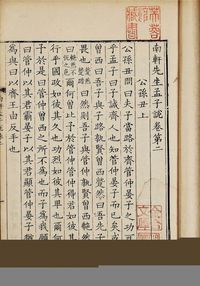 南軒先生孟子說卷第二
公孫丑上
公孫丑問曰夫子當路於齊管仲晏子之功可
乎孟子曰子誠齊人也知管仲晏子而已矣或
曾西曰吾子與子路孰賢曾西蹵然曰吾先子
畏也曰然則吾子與管仲孰賢曾西艴然
曰爾何曾比予於管仲管仲得君如彼其
行乎國政如彼其久也功烈如彼其卑也爾何
予於是曰管仲曾西之所不為也而子為我願
曰管仲以其君霸晏子以其君顯管仲晏子
為與曰以齊王由反手也